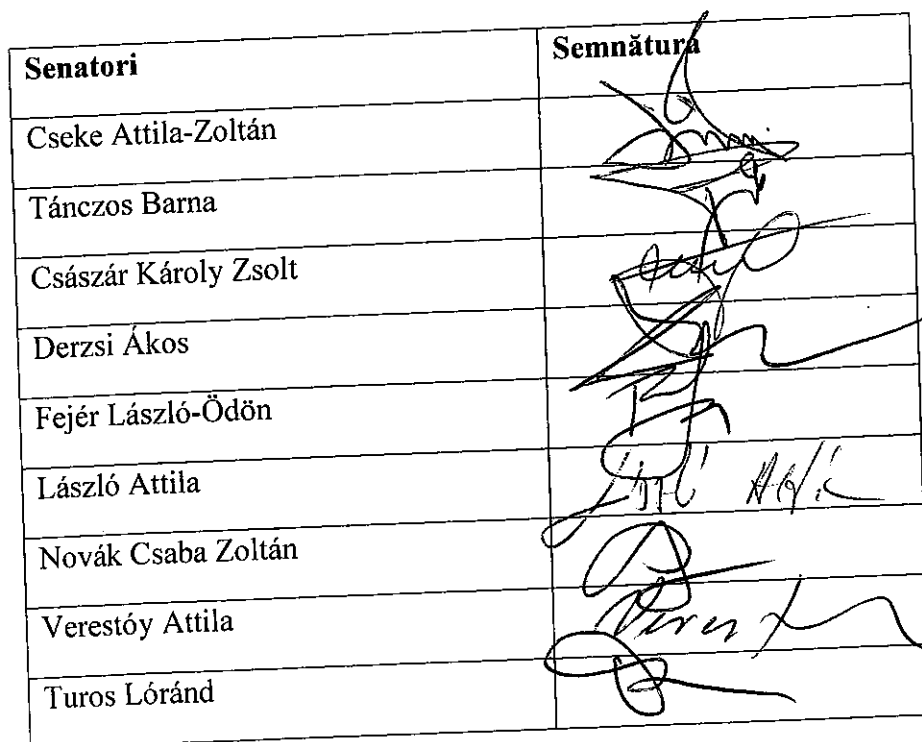 Senatori Semnătura
Cseke Attila-Zoltán
Tánczos Barna
Császár Károly Zsolt
Derzsi Ákos
Fejér László-Ödön
László Attila
Novák Csaba Zoltán
Verestóy Attila
Turos Lóránd